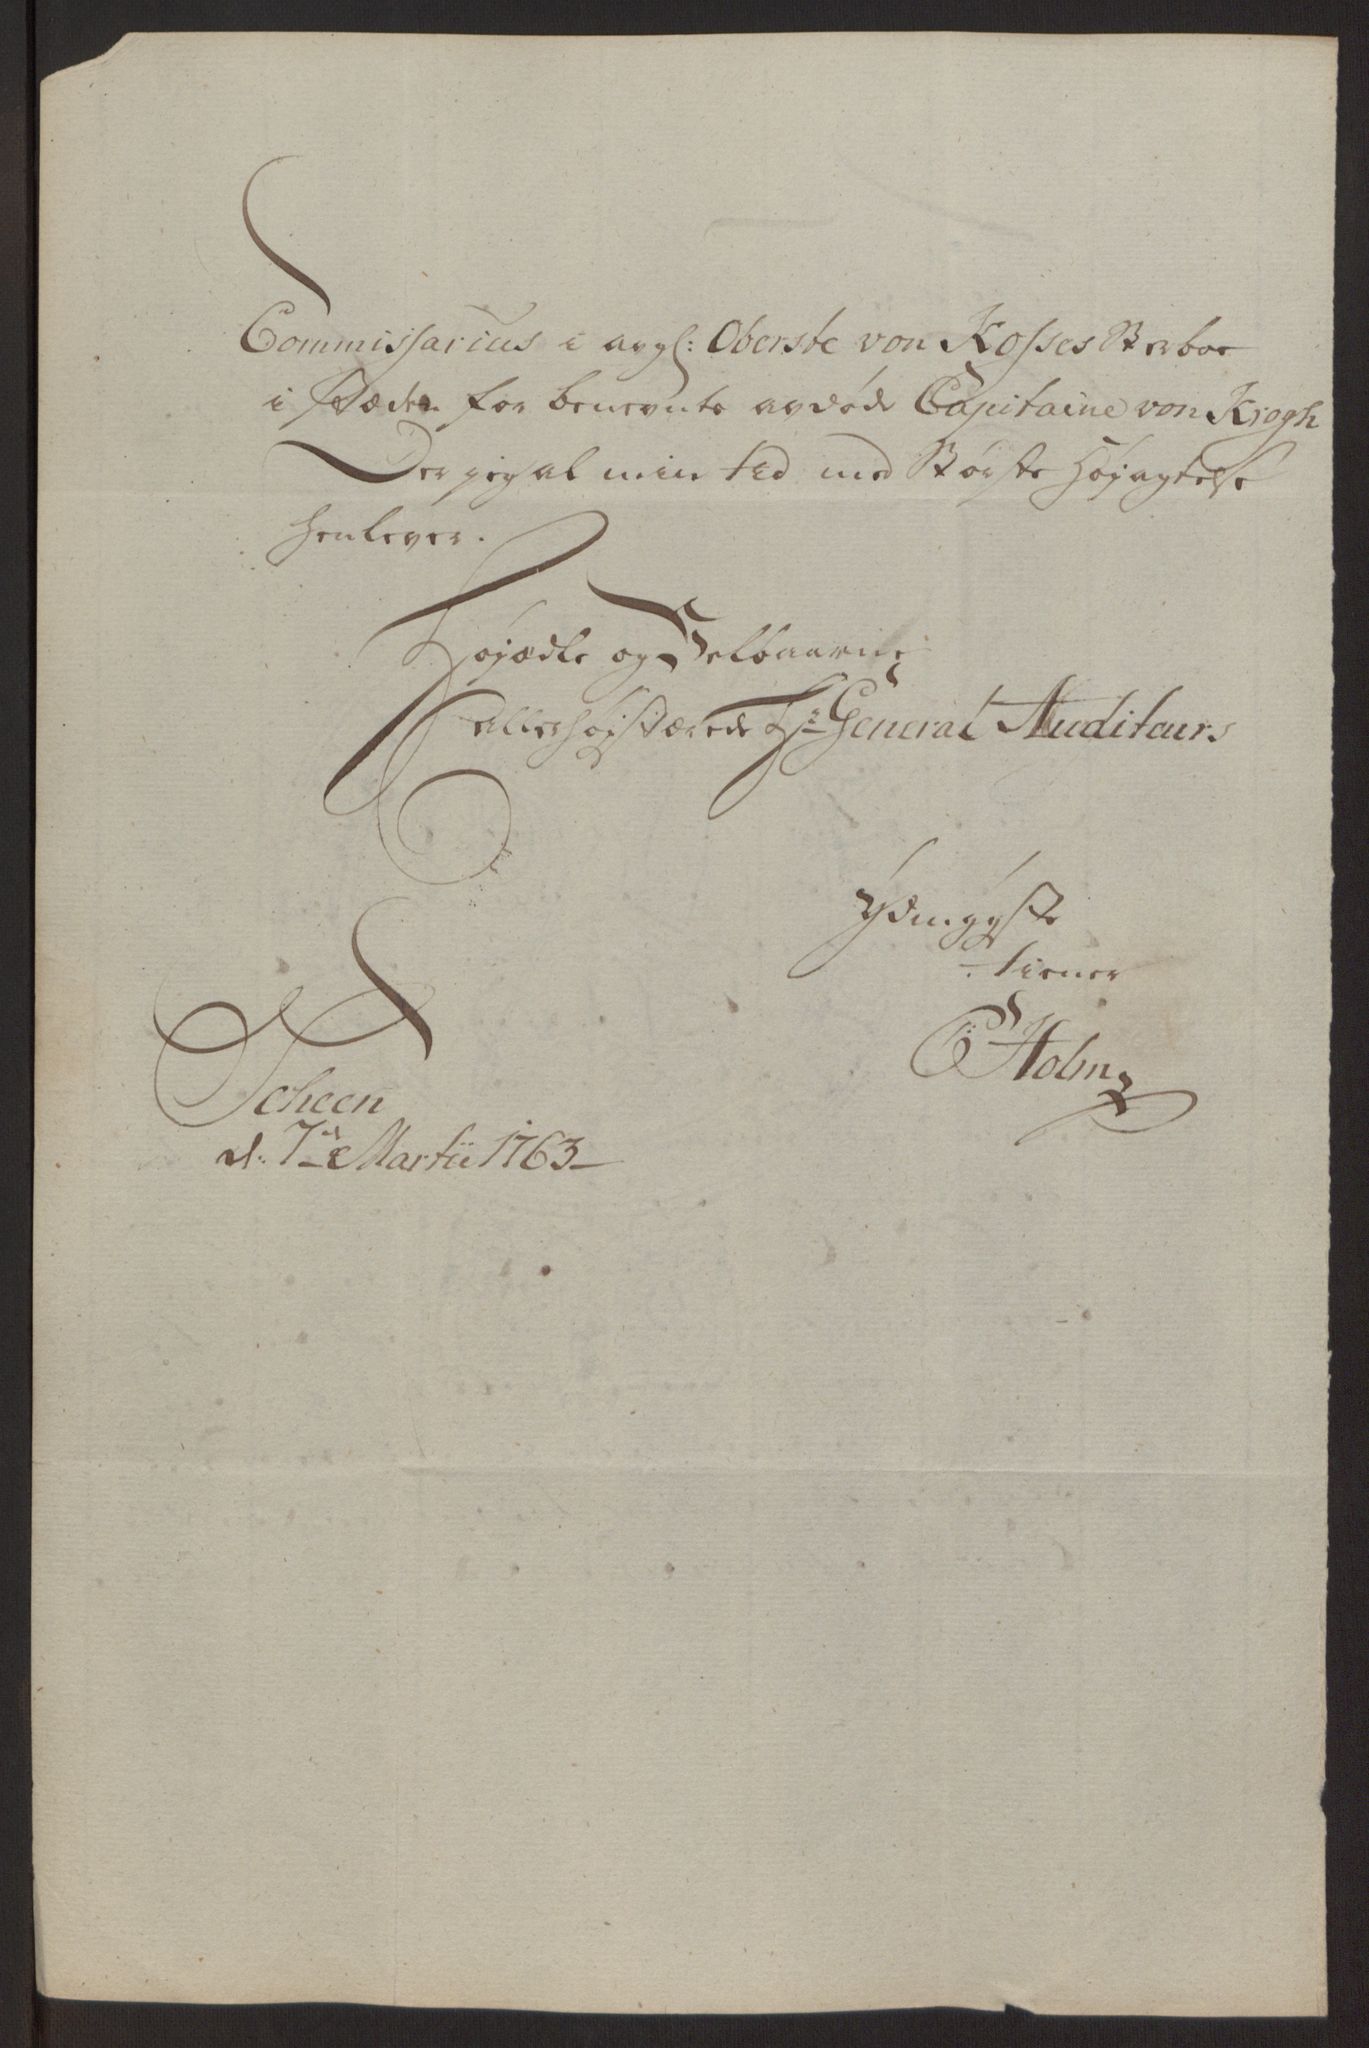 Commissarius i avgl: Oberste von Kosses Sterboe
i stæden for benevnte avdøde Capitaine von Krogh
Der jeg al min tid med Største Høyagtelse
henlever.
Høyædle og Velbaarne
allerhøystærede Hr General Auditeurs
Ydmygste
tiener
C Holm
Scheen
d: 7de Martii 1763